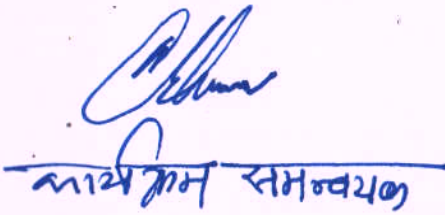 कार्यक्रम समन्वयक